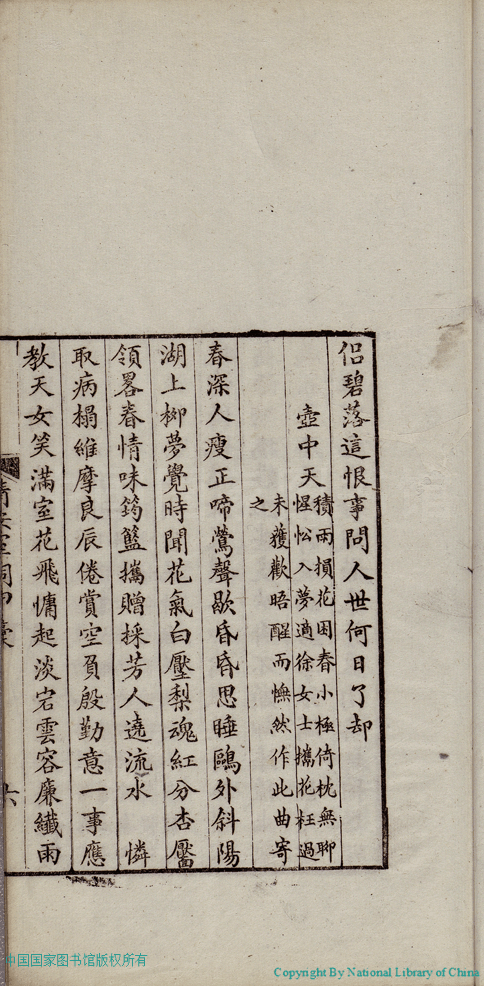 侶碧落這恨事問人世何日了却
壺中天
積雨損花困春小極倚枕無聊
惺忪入夢適徐女士攜花枉過
未獲歡晤醒而憮然作此曲寄
之
春深人瘦正啼鶯聲歇昏昏思睡鷗外斜陽
湖上柳夢覺時聞花氣白壓梨魂紅分杏靨
領畧春情味筠籃攜贈採芳人遶流水 憐
取病榻維摩良辰倦賞空負殷勤意一事應
教天女笑滿室花飛慵起淡宕雲容廉纖雨
六
中国国家图书馆版权所有
Copyright By National Library of China